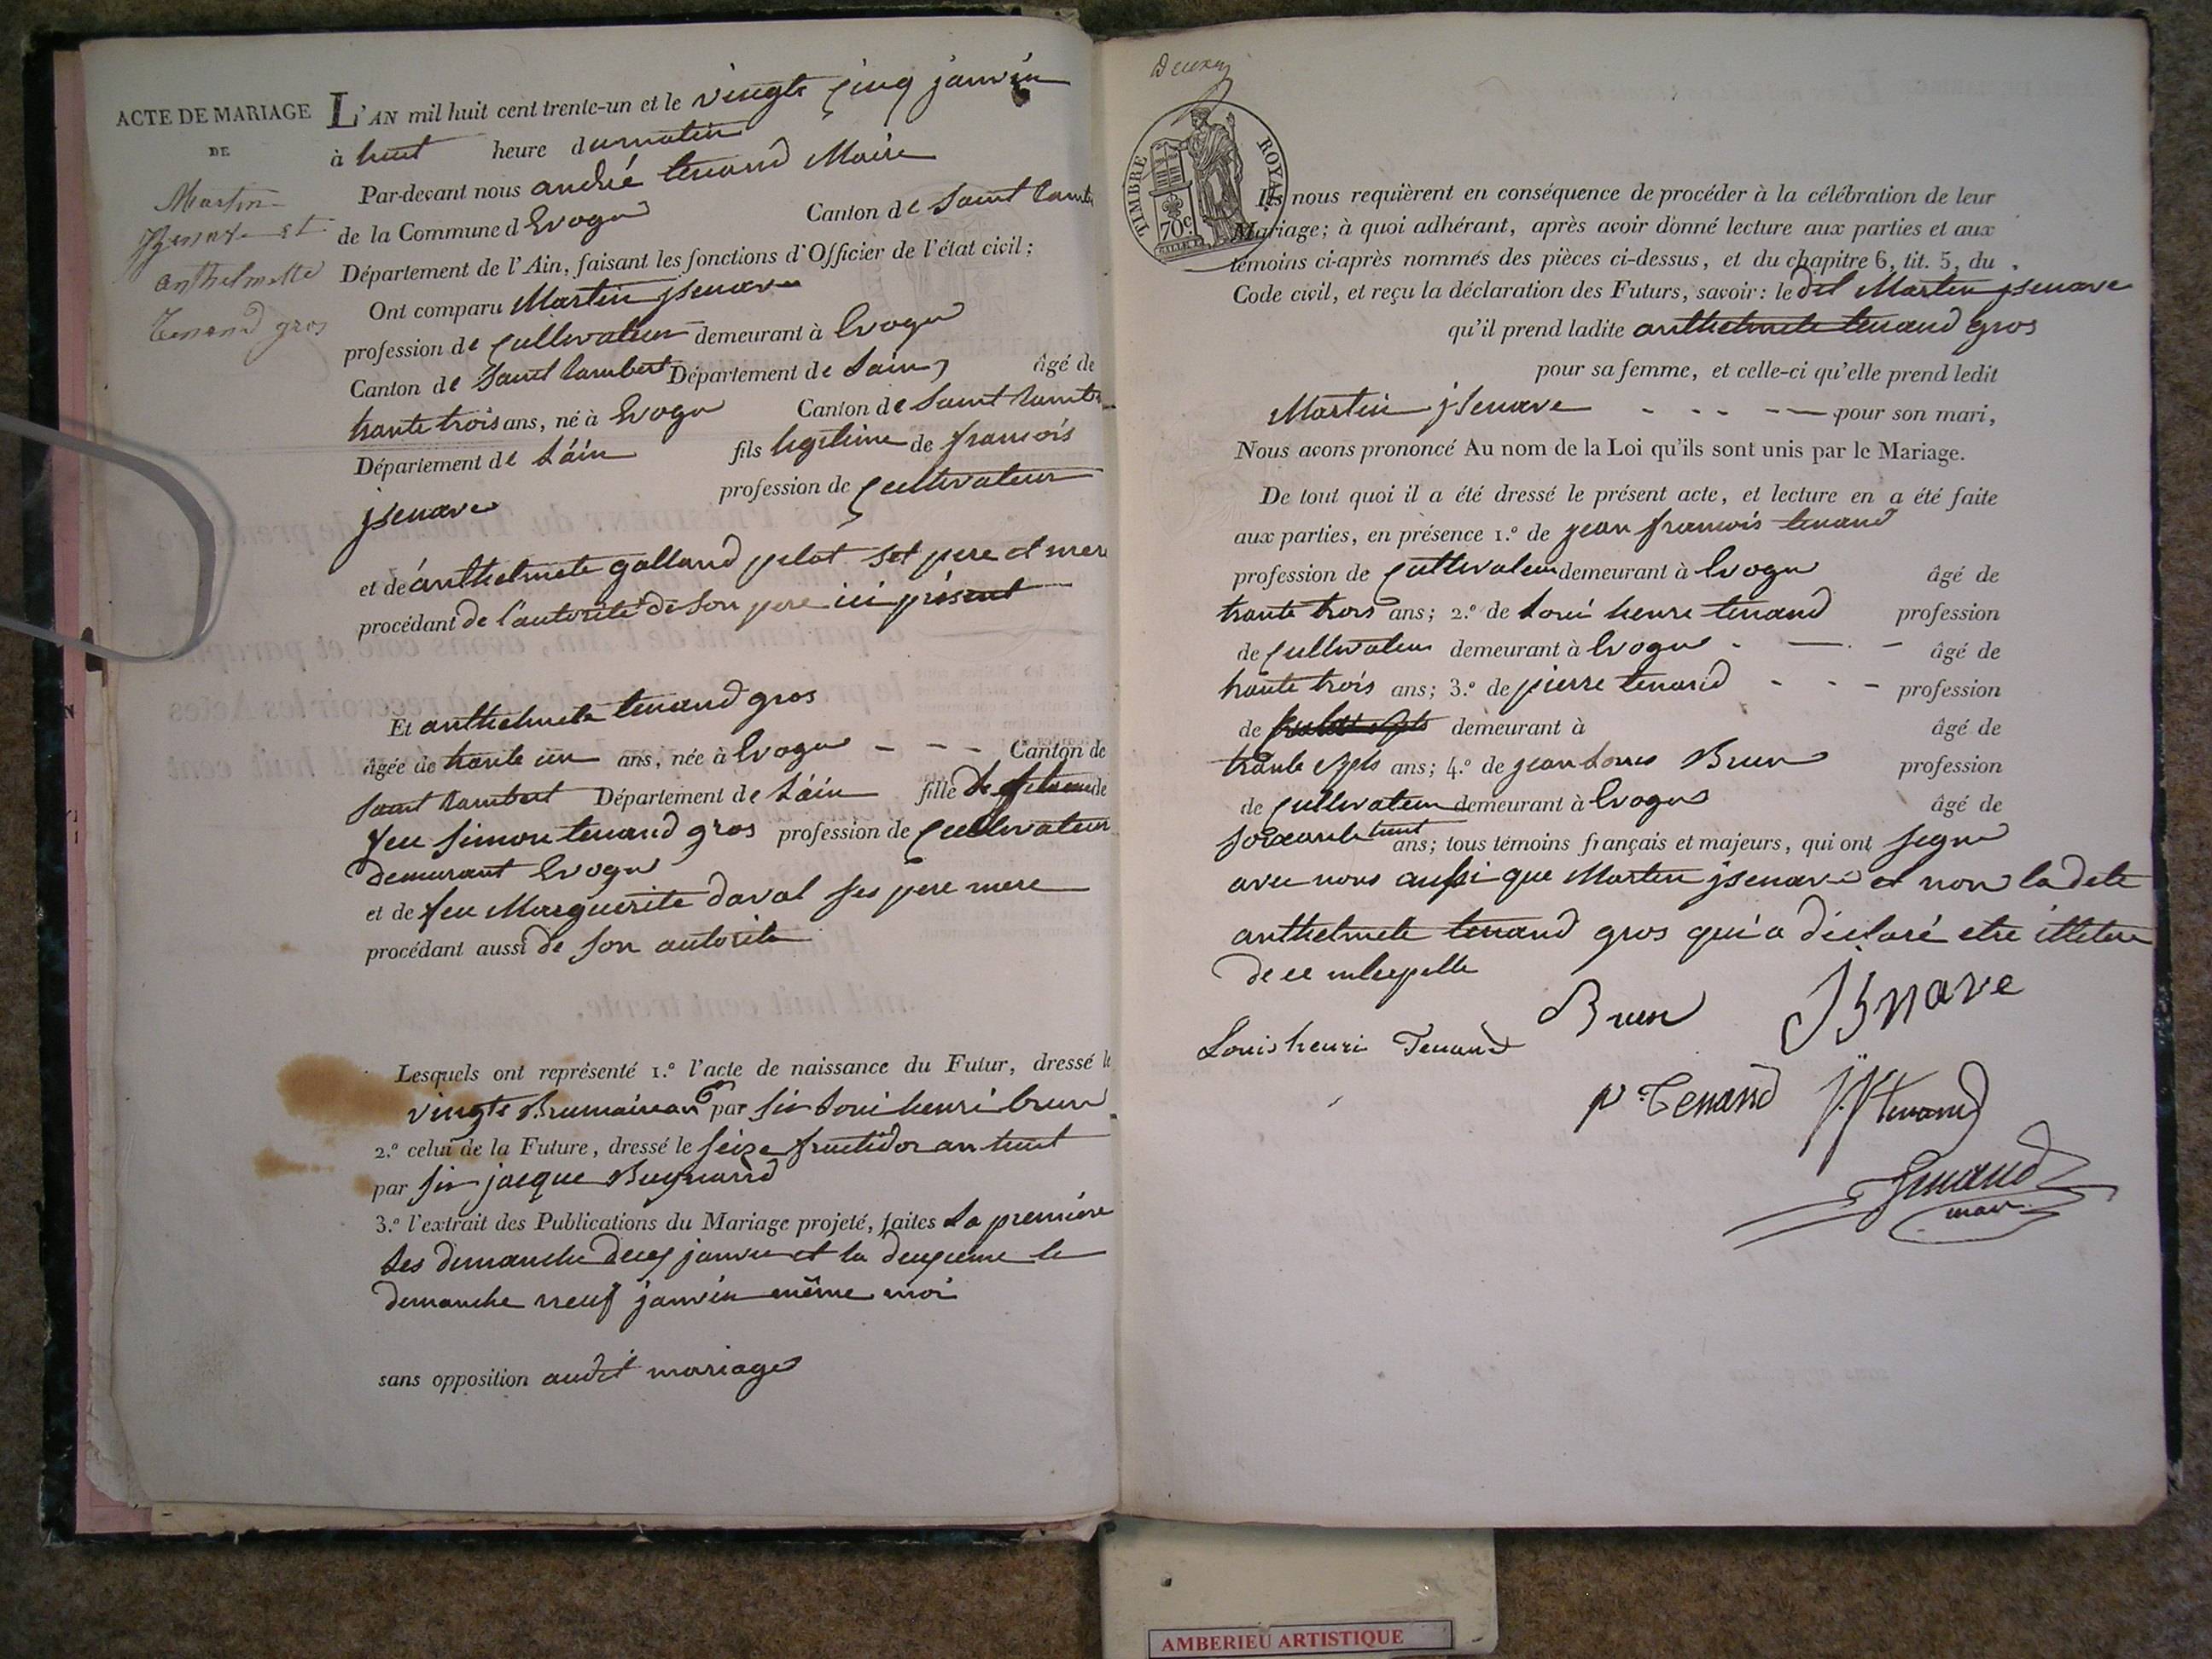 ACTE DE MARIAGE
DE
Martin
et
anthelmette
Tenand gros
L'AN mil huit cent trente-un et le vingts cinq janvier
à huit heure du matin
Par-devant nous andré tenand Maire
de la Commune d Evoge Canton de Saint Ramb
Département de l'Ain, faisant les fonctions d'Officier de l'état civil;
Ont comparu Martin jsenave
profession de Cultivateur demeurant à Evoge
Canton de Saint Rambert Département de Lain, âgé de
trante trois ans, né à Evoge Canton de Saint Rambr
Département de Láin fils legitime de francois
jsenave profession de Cultivateur
et de anthelmete galland pelot set pere et mere
procédant de l'autorité de son pere ici présent
Et anthelmete tenand gros
âgée de trante un ans, née à Evoge - - - Canton de
Saint Rambert Département de Láin fille de
feu Simon tenand gros profession de Cultivateur
demurant Evoge
et de feu Marguerite daval ses pere mere
procédant aussi de son autorite
Lesquels ont représenté 1.º l'acte de naissance du Futur, dressé le
vingts Brumaire an 6 par sir Loui henri brun
2.º celui de la Future, dressé le seize fructidor an huit
par sir jacque Bugnard
3.º l'extrait des Publications du Mariage projeté, faites La premiere
Les dimanche deux janvier et la deuxieme le
dimanche neuf janvier même moi
sans opposition audit mariage
TIMBRE ROYAL
70c
Ils nous requièrent en conséquence de procéder à la célébration de leur
Mariage; à quoi adhérant, après avoir donné lecture aux parties et aux
témoins ci-après nommés des pièces ci-dessus, et du chapitre 6, tit. 5, du
Code civil, et reçu la déclaration des Futurs, savoir: le dit Martin jsenave
qu'il prend ladite anthelmete tenand gros
pour sa femme, et celle-ci qu'elle prend ledit
Martin jsenave - - - - — pour son mari,
Nous avons prononcé Au nom de la Loi qu'ils sont unis par le Mariage.
De tout quoi il a été dressé le présent acte, et lecture en a été faite
aux parties, en présence 1.º de jean francois tenand
profession de Cultivateur demeurant à Evoge âgé de
trante trois ans; 2.º de Loui henri tenand profession
de Cultivateur demeurant à Evoge - — - âgé de
trante trois ans; 3.º de pierre tenand - - - profession
de demeurant à âgé de
trante septs ans; 4.º de jean Louis Brun profession
de Cultivateur demeurant à Evoge âgé de
soixante huit ans; tous témoins français et majeurs, qui ont signe
avec nous aussi que Martin jsenave et non la dete
anthelmete tenand gros qui a déclaré etre illetere
de ce
Brun Jsnave
Louis henri Tenand
p Tenand JF tenand
Tenand
maire
AMBERIEU ARTISTIQUE